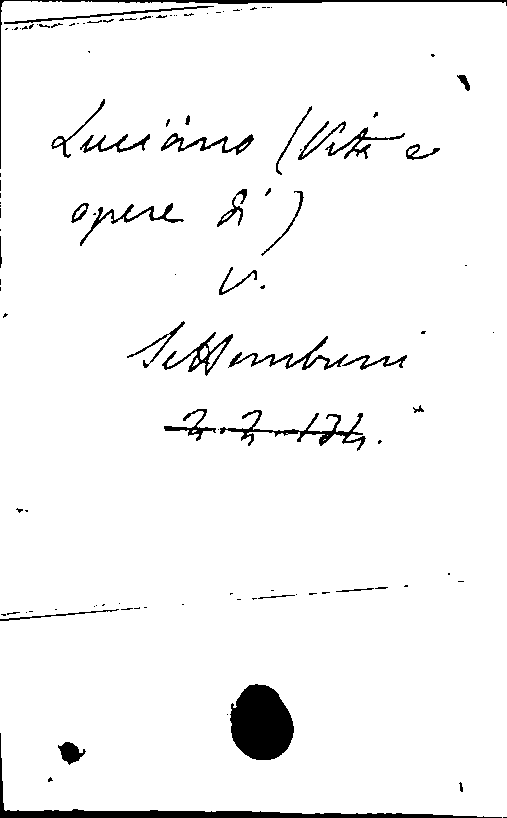 Luciano (Vita e
opere di)
V.
Settembrini
2.2.134.